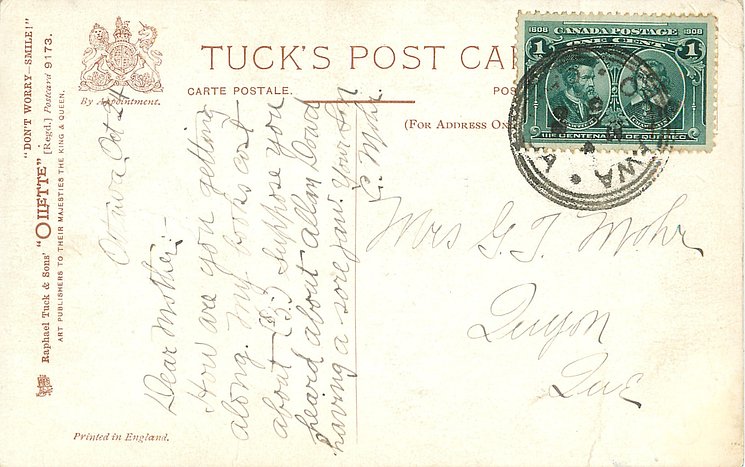 "DON'T WORRY—SMILE!"
Raphael Tuck & Sons' "OILETTE" [Regd.] Postcard 9173.
ART PUBLISHERS TO THEIR MAJESTIES THE KING & QUEEN.
By Appointment.
TUCK'S POST CAR
CARTE POSTALE.
POS
(FOR ADDRESS ON
1608 CANADA POSTAGE 1908
1 ONE CENT 1
IIIE CENTENAIRE DE QUEBEC
OTTAWA
Ottawa Oct 24
Dear Mother:-
How are you getting
along. My books cost
about $3.5 I suppose you
heard about Allan Dowd
having a sore jaw. Your Son
C. Mohr
Mrs G. T. Mohr
Quyon
Que
Printed in England.